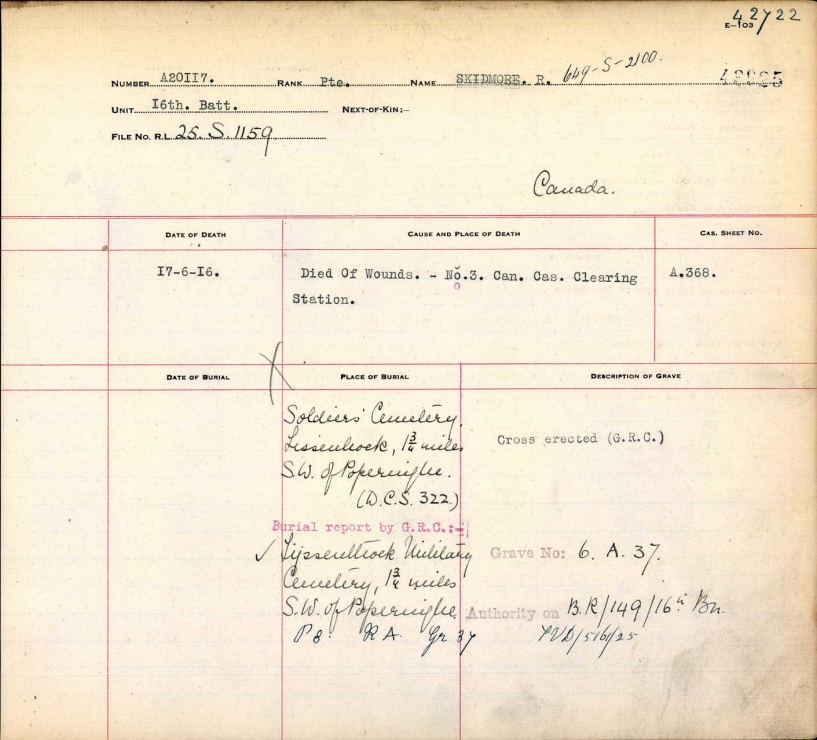 42722
E-103
NUMBER A20117. RANK Pte. NAME SKIDMORE. R. 649-S-2100.
UNIT 16th. Batt. NEXT-OF-KIN:-
FILE NO. R.L. 25. S. 1159
Canada.
DATE OF DEATH CAUSE AND PLACE OF DEATH CAS. SHEET NO.
17-6-16. Died Of Wounds. - No.3. Can. Cas. Clearing A.368.
Station.
DATE OF BURIAL PLACE OF BURIAL DESCRIPTION OF GRAVE
Soldiers' Cemetery.
Lissenhoek, 1 3/4 miles Cross erected (G.R.C.)
S.W. of Poperinghe.
(D.C.S. 322.)
Burial report by G.R.C.:-
✓ Lijssenthoek Military Grave No: 6. A. 37.
Cemetery, 1 3/4 miles
S.W. of Poperinghe Authority on B.R/149/16th Bn.
P 8. R A. Gr 37